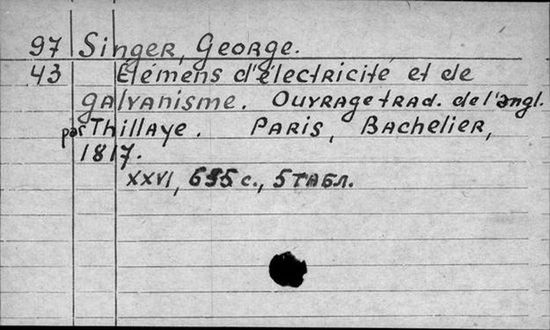 97 Singer, George.
43 Elémens d'électricité et de
galvanisme. Ouvrage trad. de l'angl.
par Thillaye. Paris, Bachelier,
1817.
XXVI, 655 с., 5 табл.